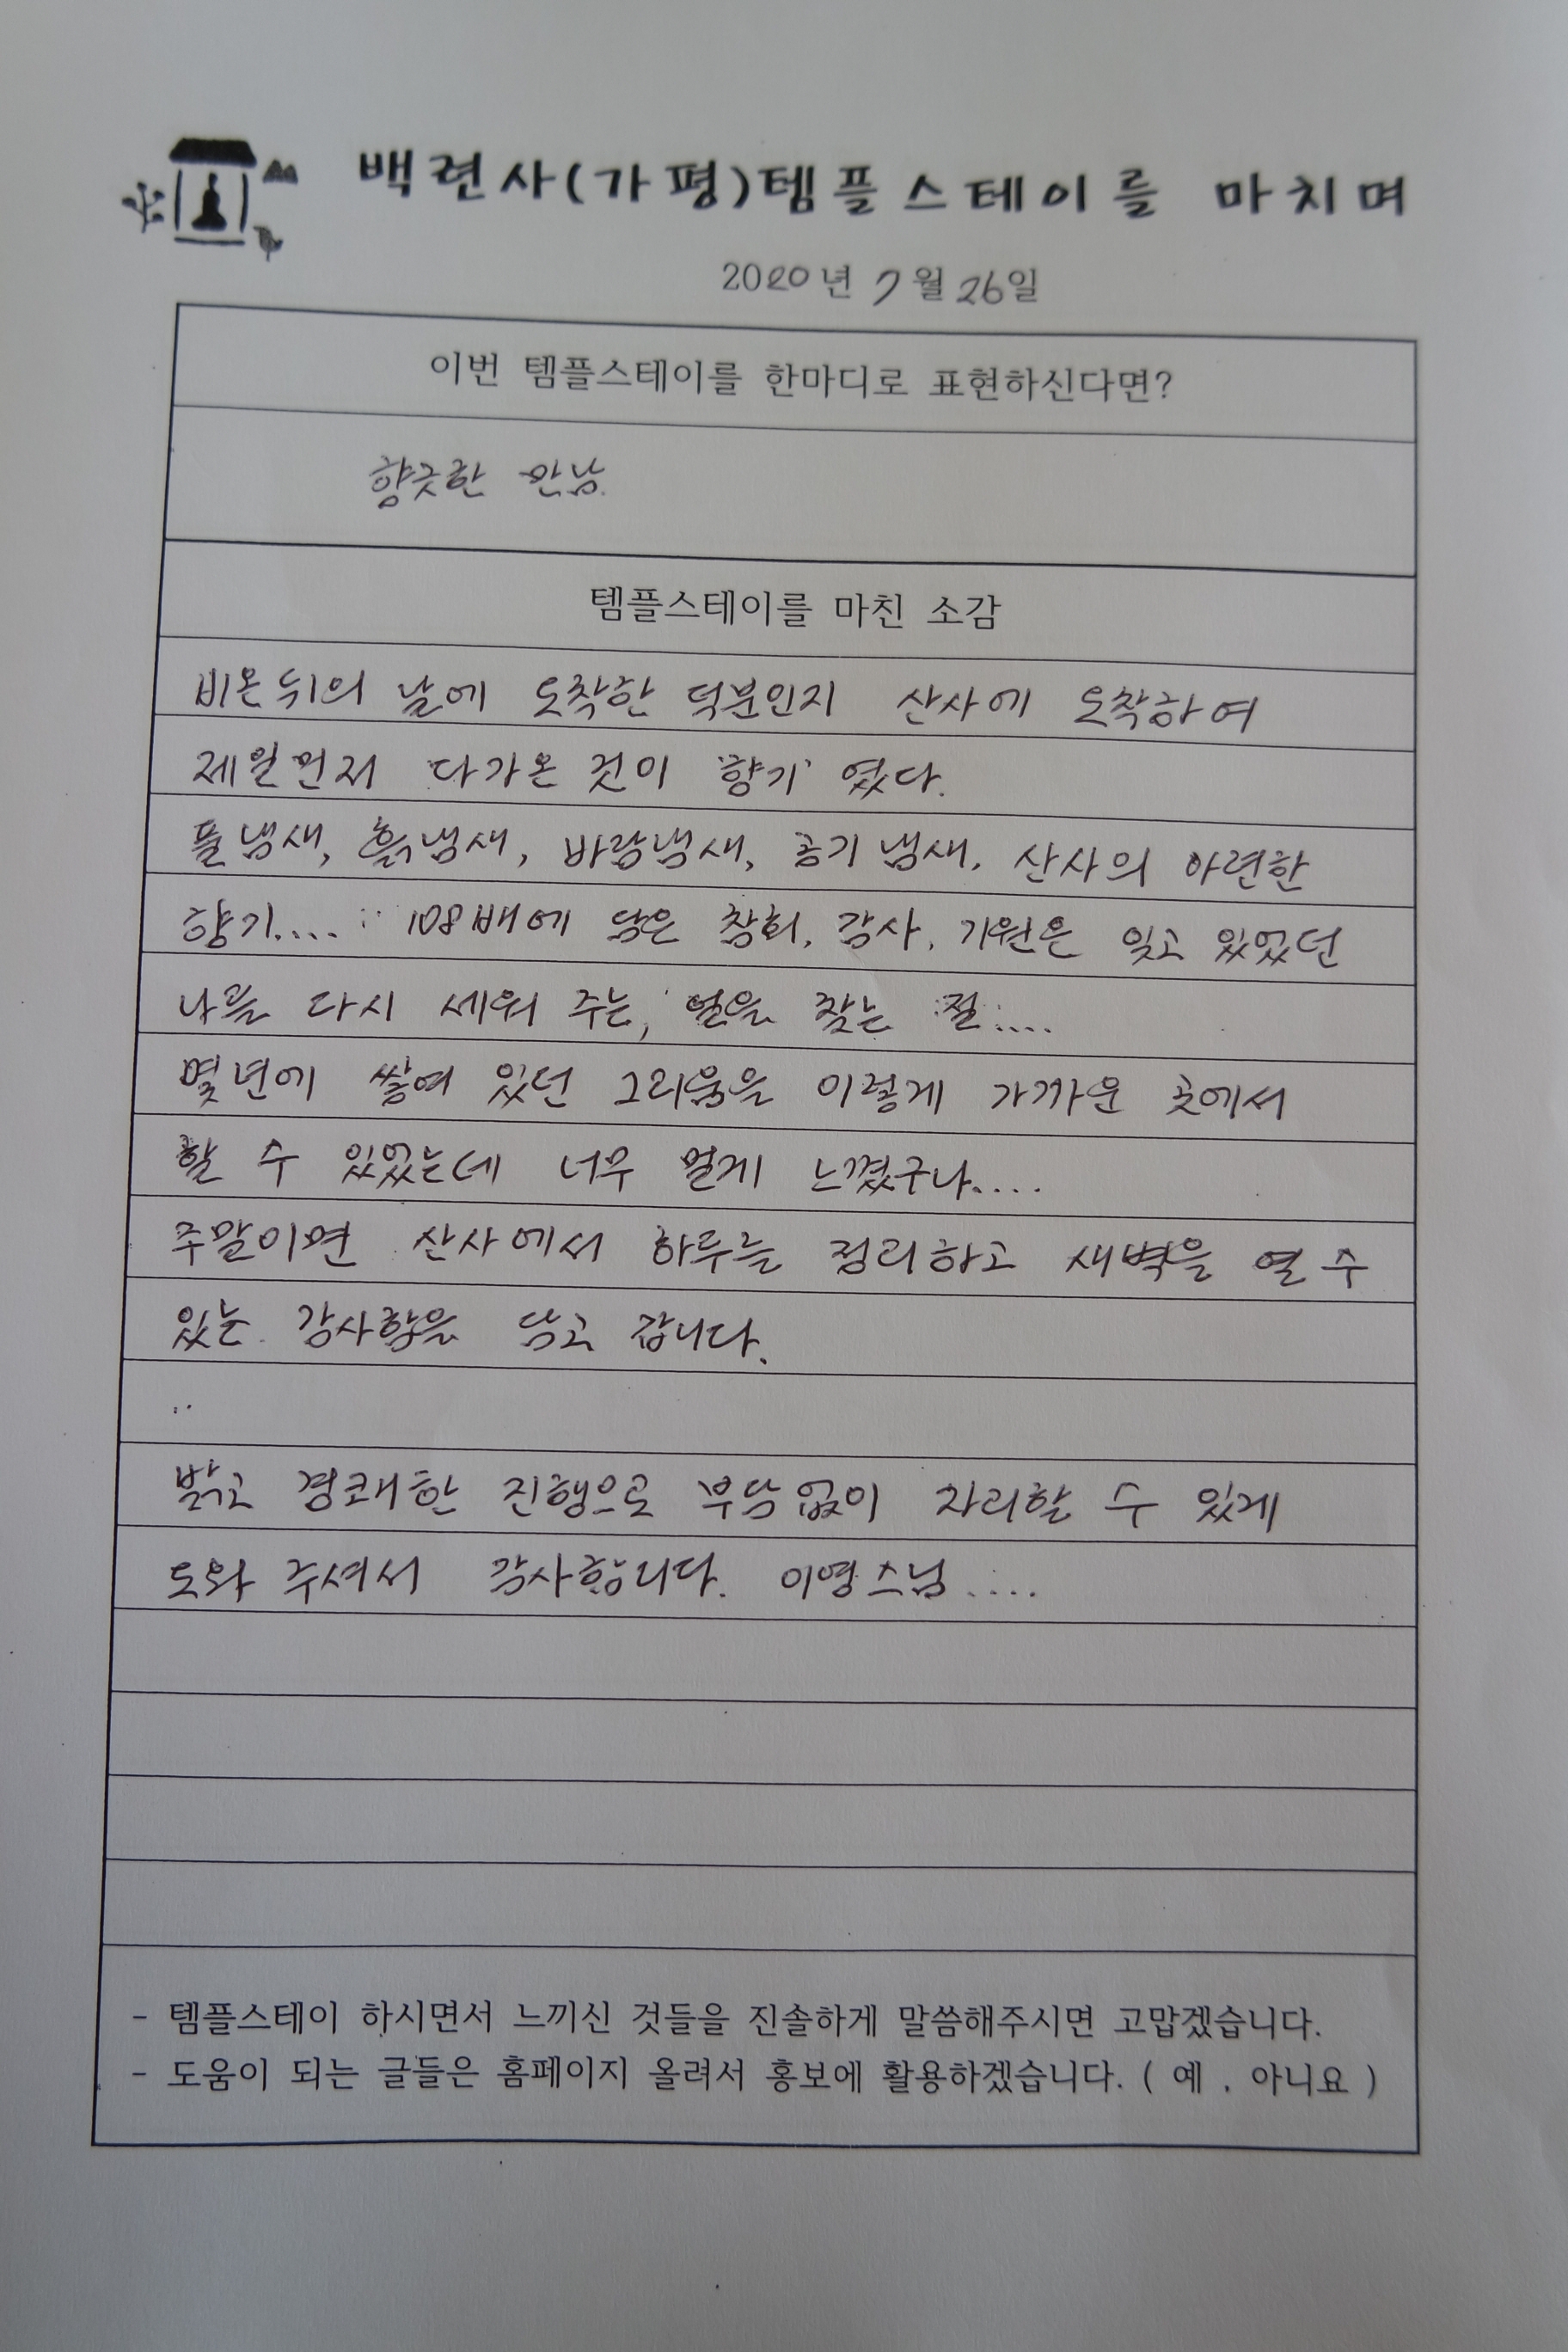 백련사(가평)템플스테이를 마치며
2020년 7월 26일
이번 템플스테이를 한마디로 표현하신다면?
향긋한 만남.
템플스테이를 마친 소감
비온뒤의 날에 도착한 덕분인지 산사에 도착하여
제일먼저 다가온 것이 '향기' 였다.
풀냄새, 흙냄새, 바람냄새, 공기 냄새, 산사의 아련한
향기.... 108배에 담은 참회, 감사, 기원은 잊고 있었던
나를 다시 세워 주는, 얼을 찾는 절....
몇년에 쌓여 있던 그리움을 이렇게 가까운 곳에서
할 수 있었는데 너무 멀게 느꼈구나....
주말이면 산사에서 하루를 정리하고 새벽을 열 수
있는 감사함을 담고 갑니다.
밝고 경쾌한 진행으로 부담없이 자리할 수 있게
도와 주셔서 감사합니다. 이영스님....
- 템플스테이 하시면서 느끼신 것들을 진솔하게 말씀해주시면 고맙겠습니다.
- 도움이 되는 글들은 홈페이지 올려서 홍보에 활용하겠습니다. ( 예 , 아니요 )